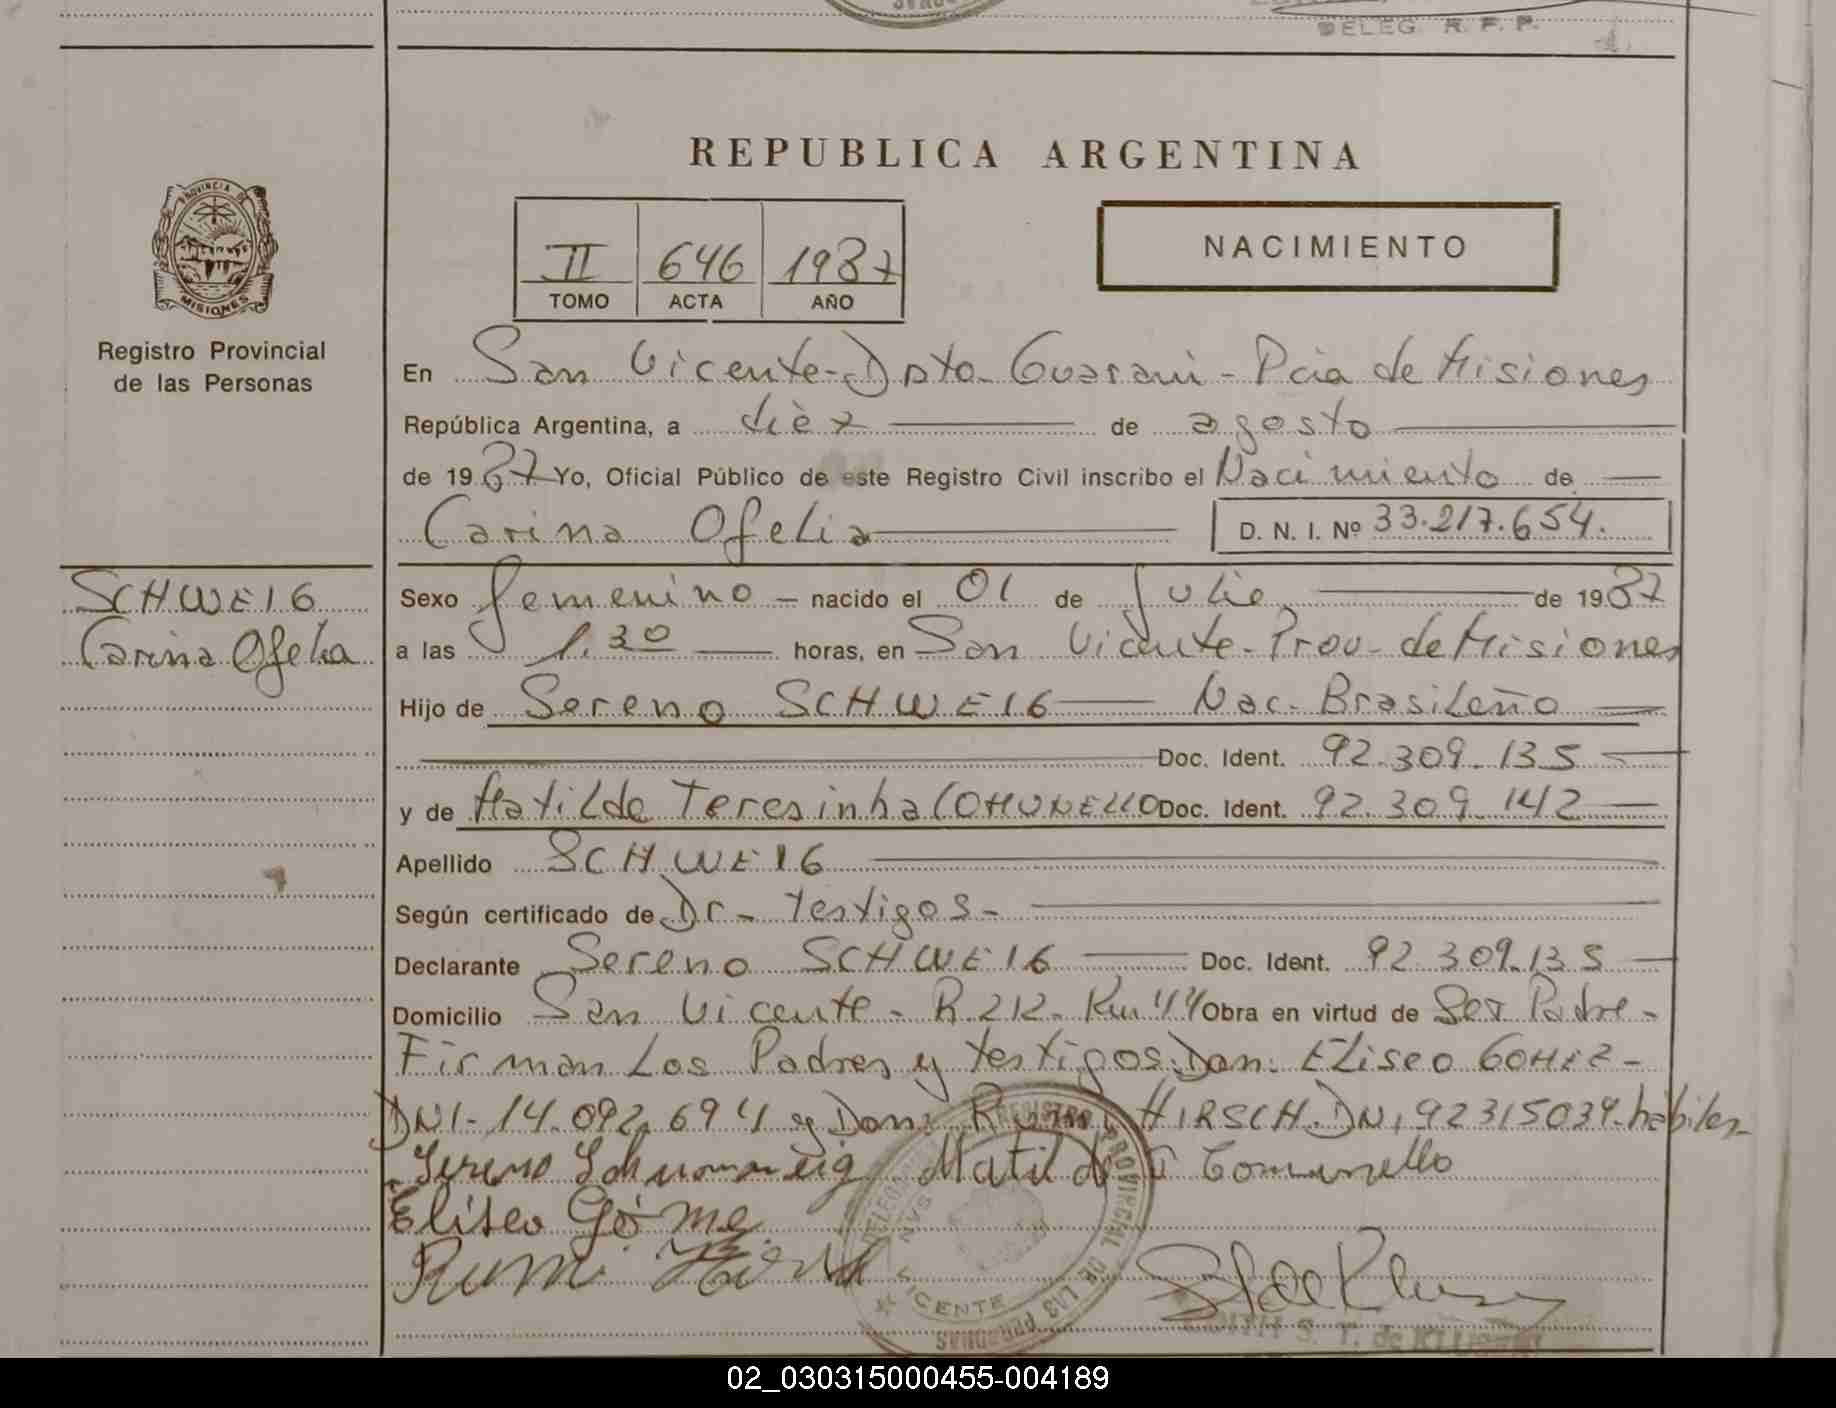 DELEG. R. P. P.
REPUBLICA ARGENTINA
PROVINCIA DE
MISIONES
Registro Provincial
de las Personas
II 646 1987
TOMO ACTA AÑO
NACIMIENTO
En San Vicente - Dpto Guarani - Pcia de Misiones
República Argentina, a dièz de agosto
de 1987 Yo, Oficial Público de este Registro Civil inscribo el Nacimiento de
Carina Ofelia D. N. I. Nº 33.217.654.
SCHWEIG
Carina Ofelia
Sexo femenino - nacido el 01 de Julio de 1987
a las 1.30 horas, en San Vicente - Prov - de Misiones
Hijo de Sereno SCHWEIG Nac. Brasileño
Doc. Ident. 92.309.135
y de Matilde Teresinha COMUNELLO Doc. Ident. 92.309.142
Apellido SCHWEIG
Según certificado de Dr - testigos -
Declarante Sereno SCHWEIG Doc. Ident. 92.309.135
Domicilio San Vicente - R.212 - Km 44 Obra en virtud de Ser Padre -
Firman Los Padres y testigos: Don: ELiseo GOMEZ -
DNI - 14.092.694 y Don: HIRSCH. DNI 92315039 - hábiles -
Sereno Matilde T Comunello
Eliseo Góme
REGISTRO PROVINCIAL DE LAS PERSONAS
VICENTE
S. T. de
02_030315000455-004189